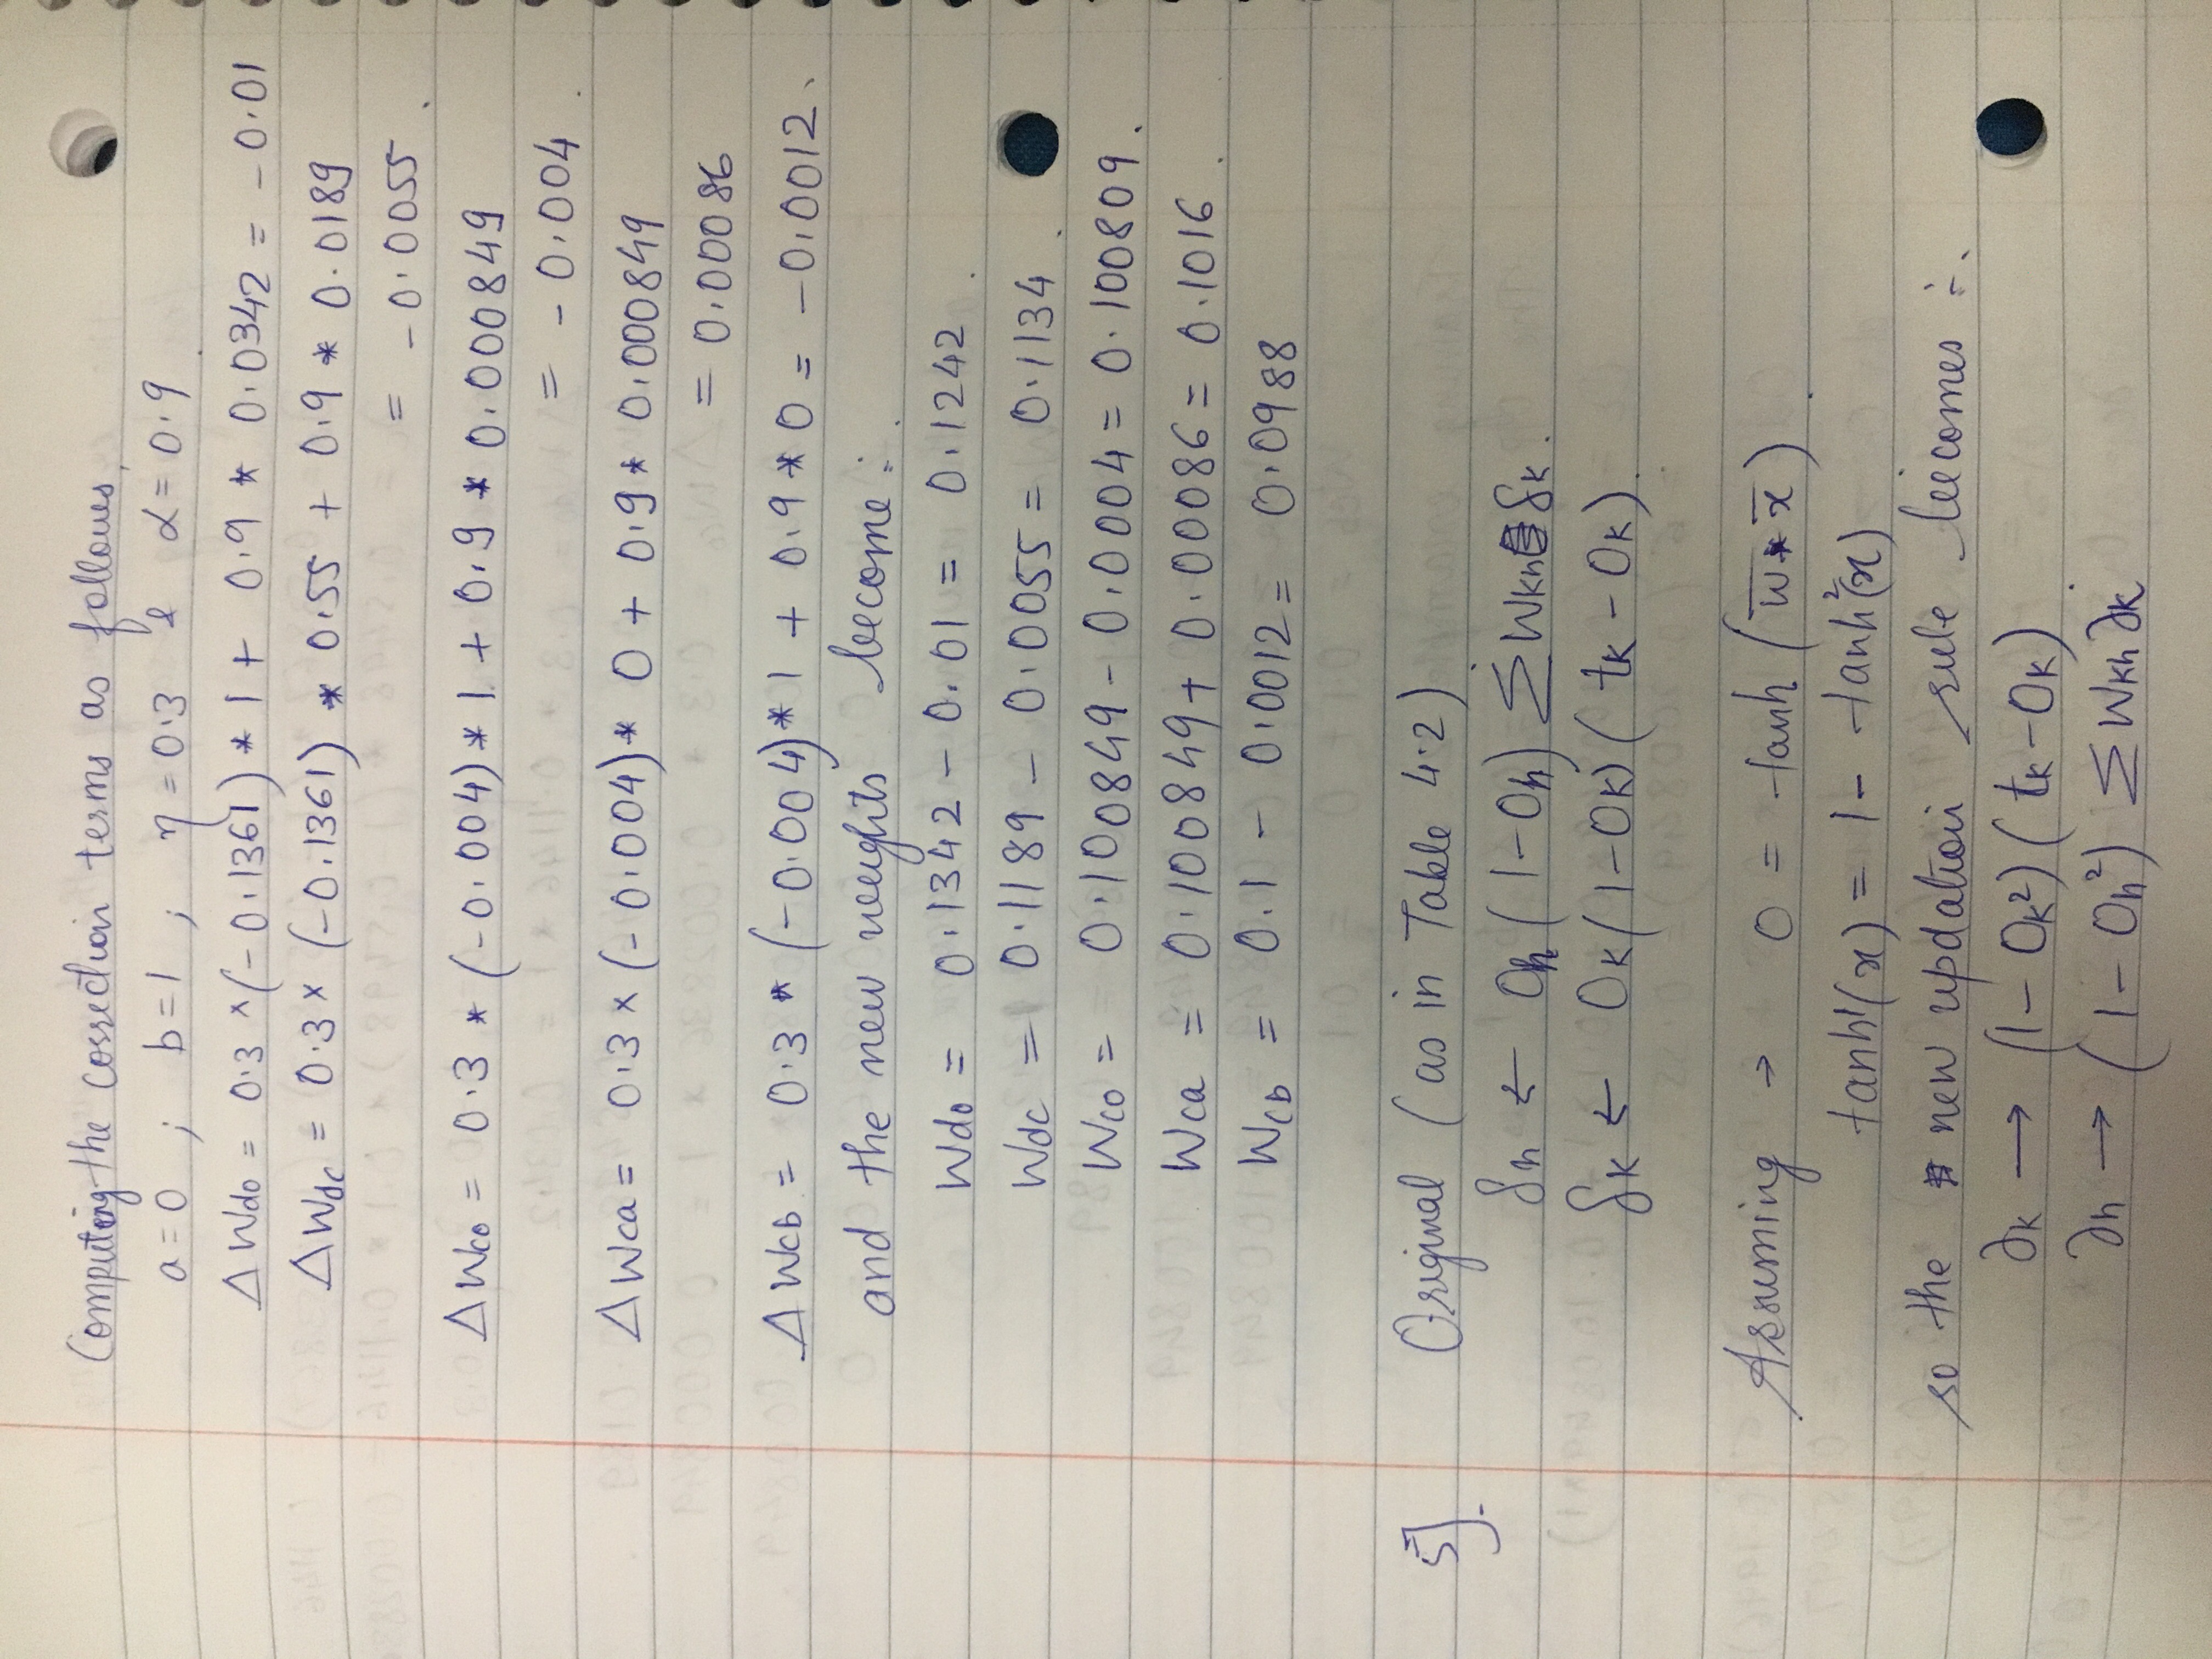 Computing the correction terms as follows,
a = 0 ; b = 1 ; η = 0.3 & α = 0.9
ΔWdo = 0.3 × (-0.1361) * 1 + 0.9 * 0.0342 = -0.01
ΔWdc = 0.3 × (-0.1361) * 0.55 + 0.9 * 0.0189
= -0.0055.
ΔWco = 0.3 * (-0.004) * 1 + 0.9 * 0.000849
= -0.004.
ΔWca = 0.3 × (-0.004) * 0 + 0.9 * 0.000849
= 0.00086
ΔWcb = 0.3 * (-0.004) * 1 + 0.9 * 0 = -0.0012.
and the new weights become :.
Wdo = 0.1342 - 0.01 = 0.1242.
Wdc = 0.1189 - 0.0055 = 0.1134.
Wco = 0.100849 - 0.0004 = 0.100809.
Wca = 0.100849 + 0.00086 = 0.1016.
Wcb = 0.1 - 0.0012 = 0.0988
5]. Original (as in Table 4.2).
δh ← Oh (1-Oh) Σ Wkh δk.
δk ← Ok (1-Ok) (tk - Ok).
Assuming → O = tanh (w̄ * x̄).
tanh'(x) = 1 - tanh²(x)
so the new updation rule becomes :-.
∂k → (1 - Ok²) (tk - Ok).
∂h → (1 - Oh²) Σ Wkh ∂k